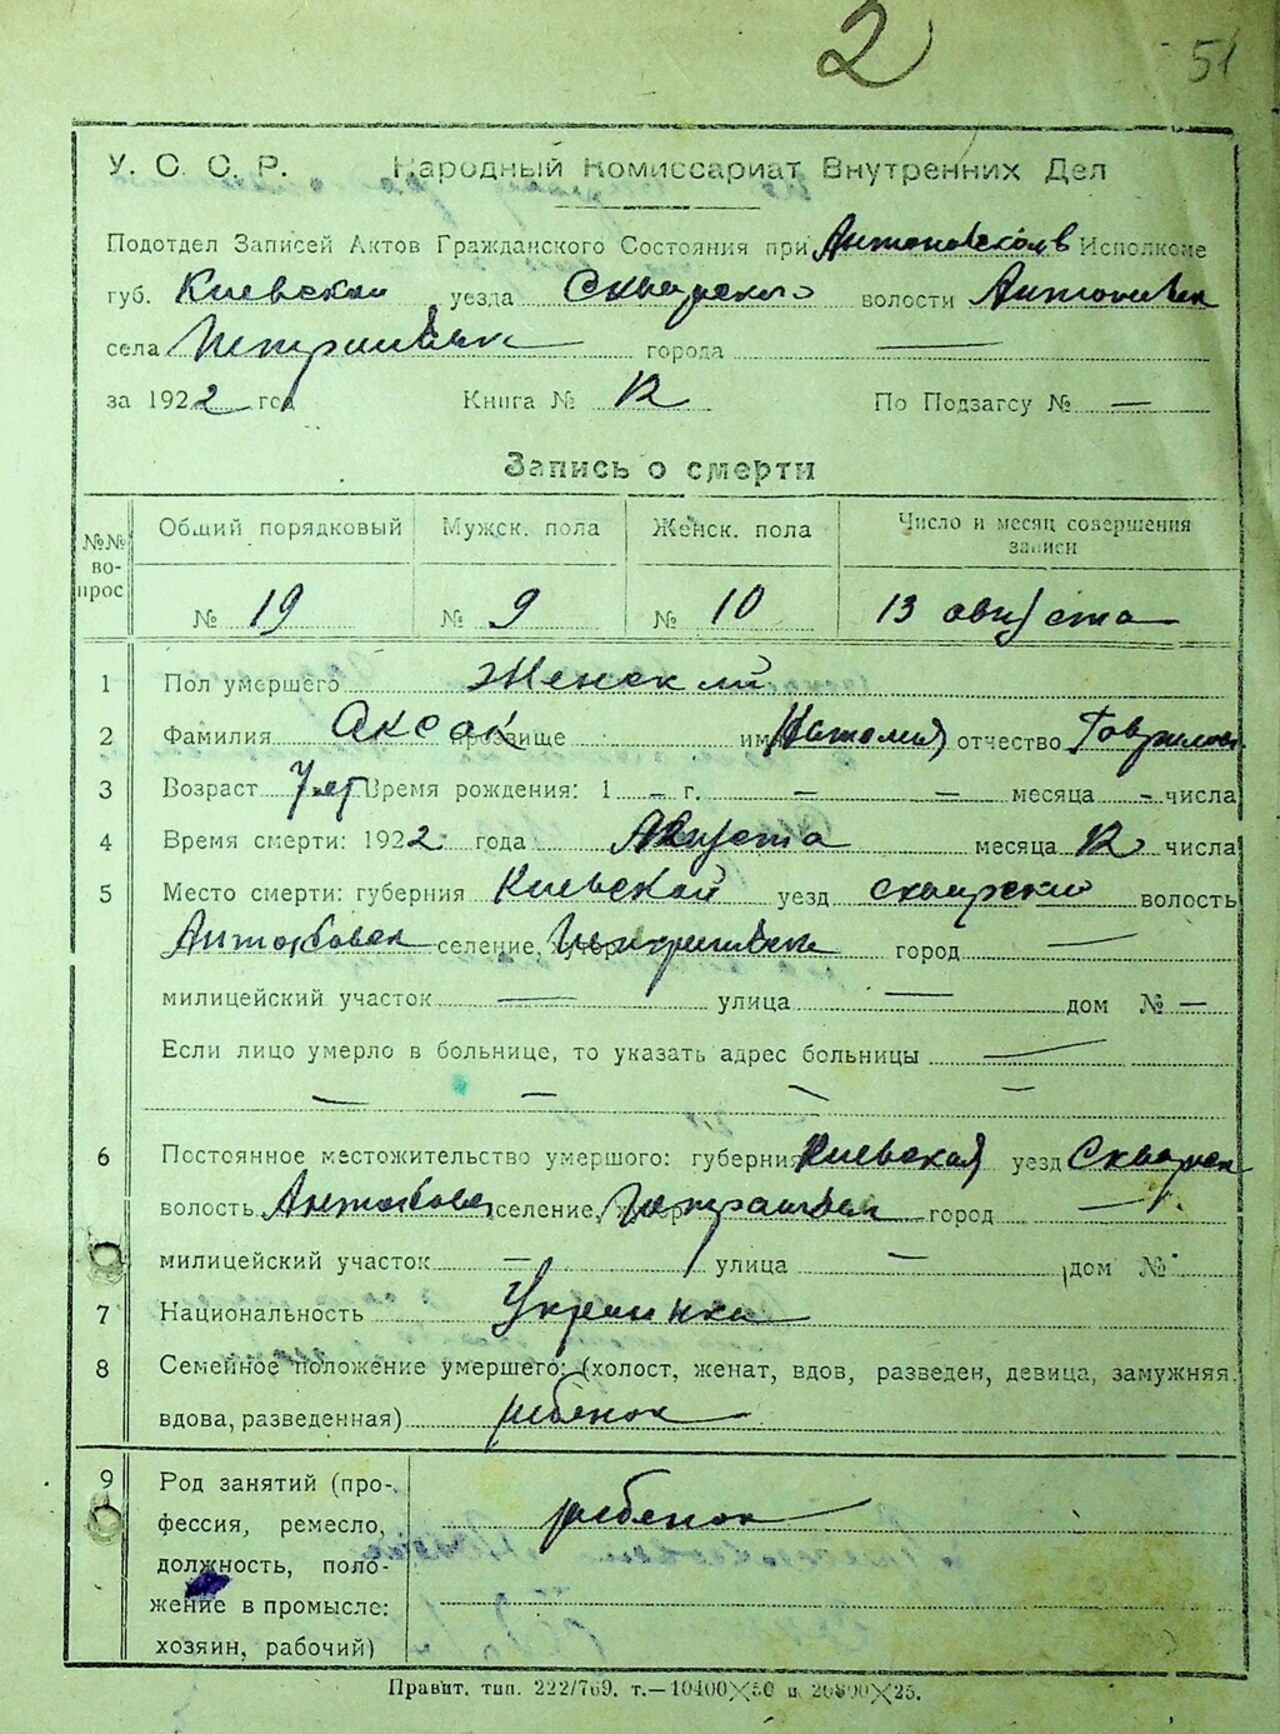 2 51
У. С. С. Р. Народный Комиссариат Внутренних Дел
Подотдел Записей Актов Гражданского Состояния при Исполкоме
губ. Киевской уезда Сквирского волости Антоновск
села города —
за 1922 год Книга № 12 По Подзагсу № —
Запись о смерти
№№ во-прос Общий порядковый Мужск. пола Женск. пола Число и месяц совершения записи
№ 19 № 9 № 10 13 августа
1 Пол умершего Женский
2 Фамилия Аксак прозвище имя Наталия отчество Гаврилов
3 Возраст 7 лет Время рождения: 1 — г. — — месяца - числа
4 Время смерти: 1922 года Августа месяца 12 числа
5 Место смерти: губерния Киевской уезд сквирский волость
селение, хутор город —
милицейский участок — улица — дом № —
Если лицо умерло в больнице, то указать адрес больницы —
— — — —
6 Постоянное местожительство умершого: губерния Киевская уезд Сквирск
волость селение, хутор город —
милицейский участок — улица — дом №
7 Национальность Украинка
8 Семейное положение умершего: (холост, женат, вдов, разведен, девица, замужняя,
вдова, разведенная) ребенок
9 Род занятий (про-
фессия, ремесло, ребенок
должность, поло-
жение в промысле:
хозяин, рабочий)
Правит. тип. 222/769. т.—10400×50 и 20800×25.